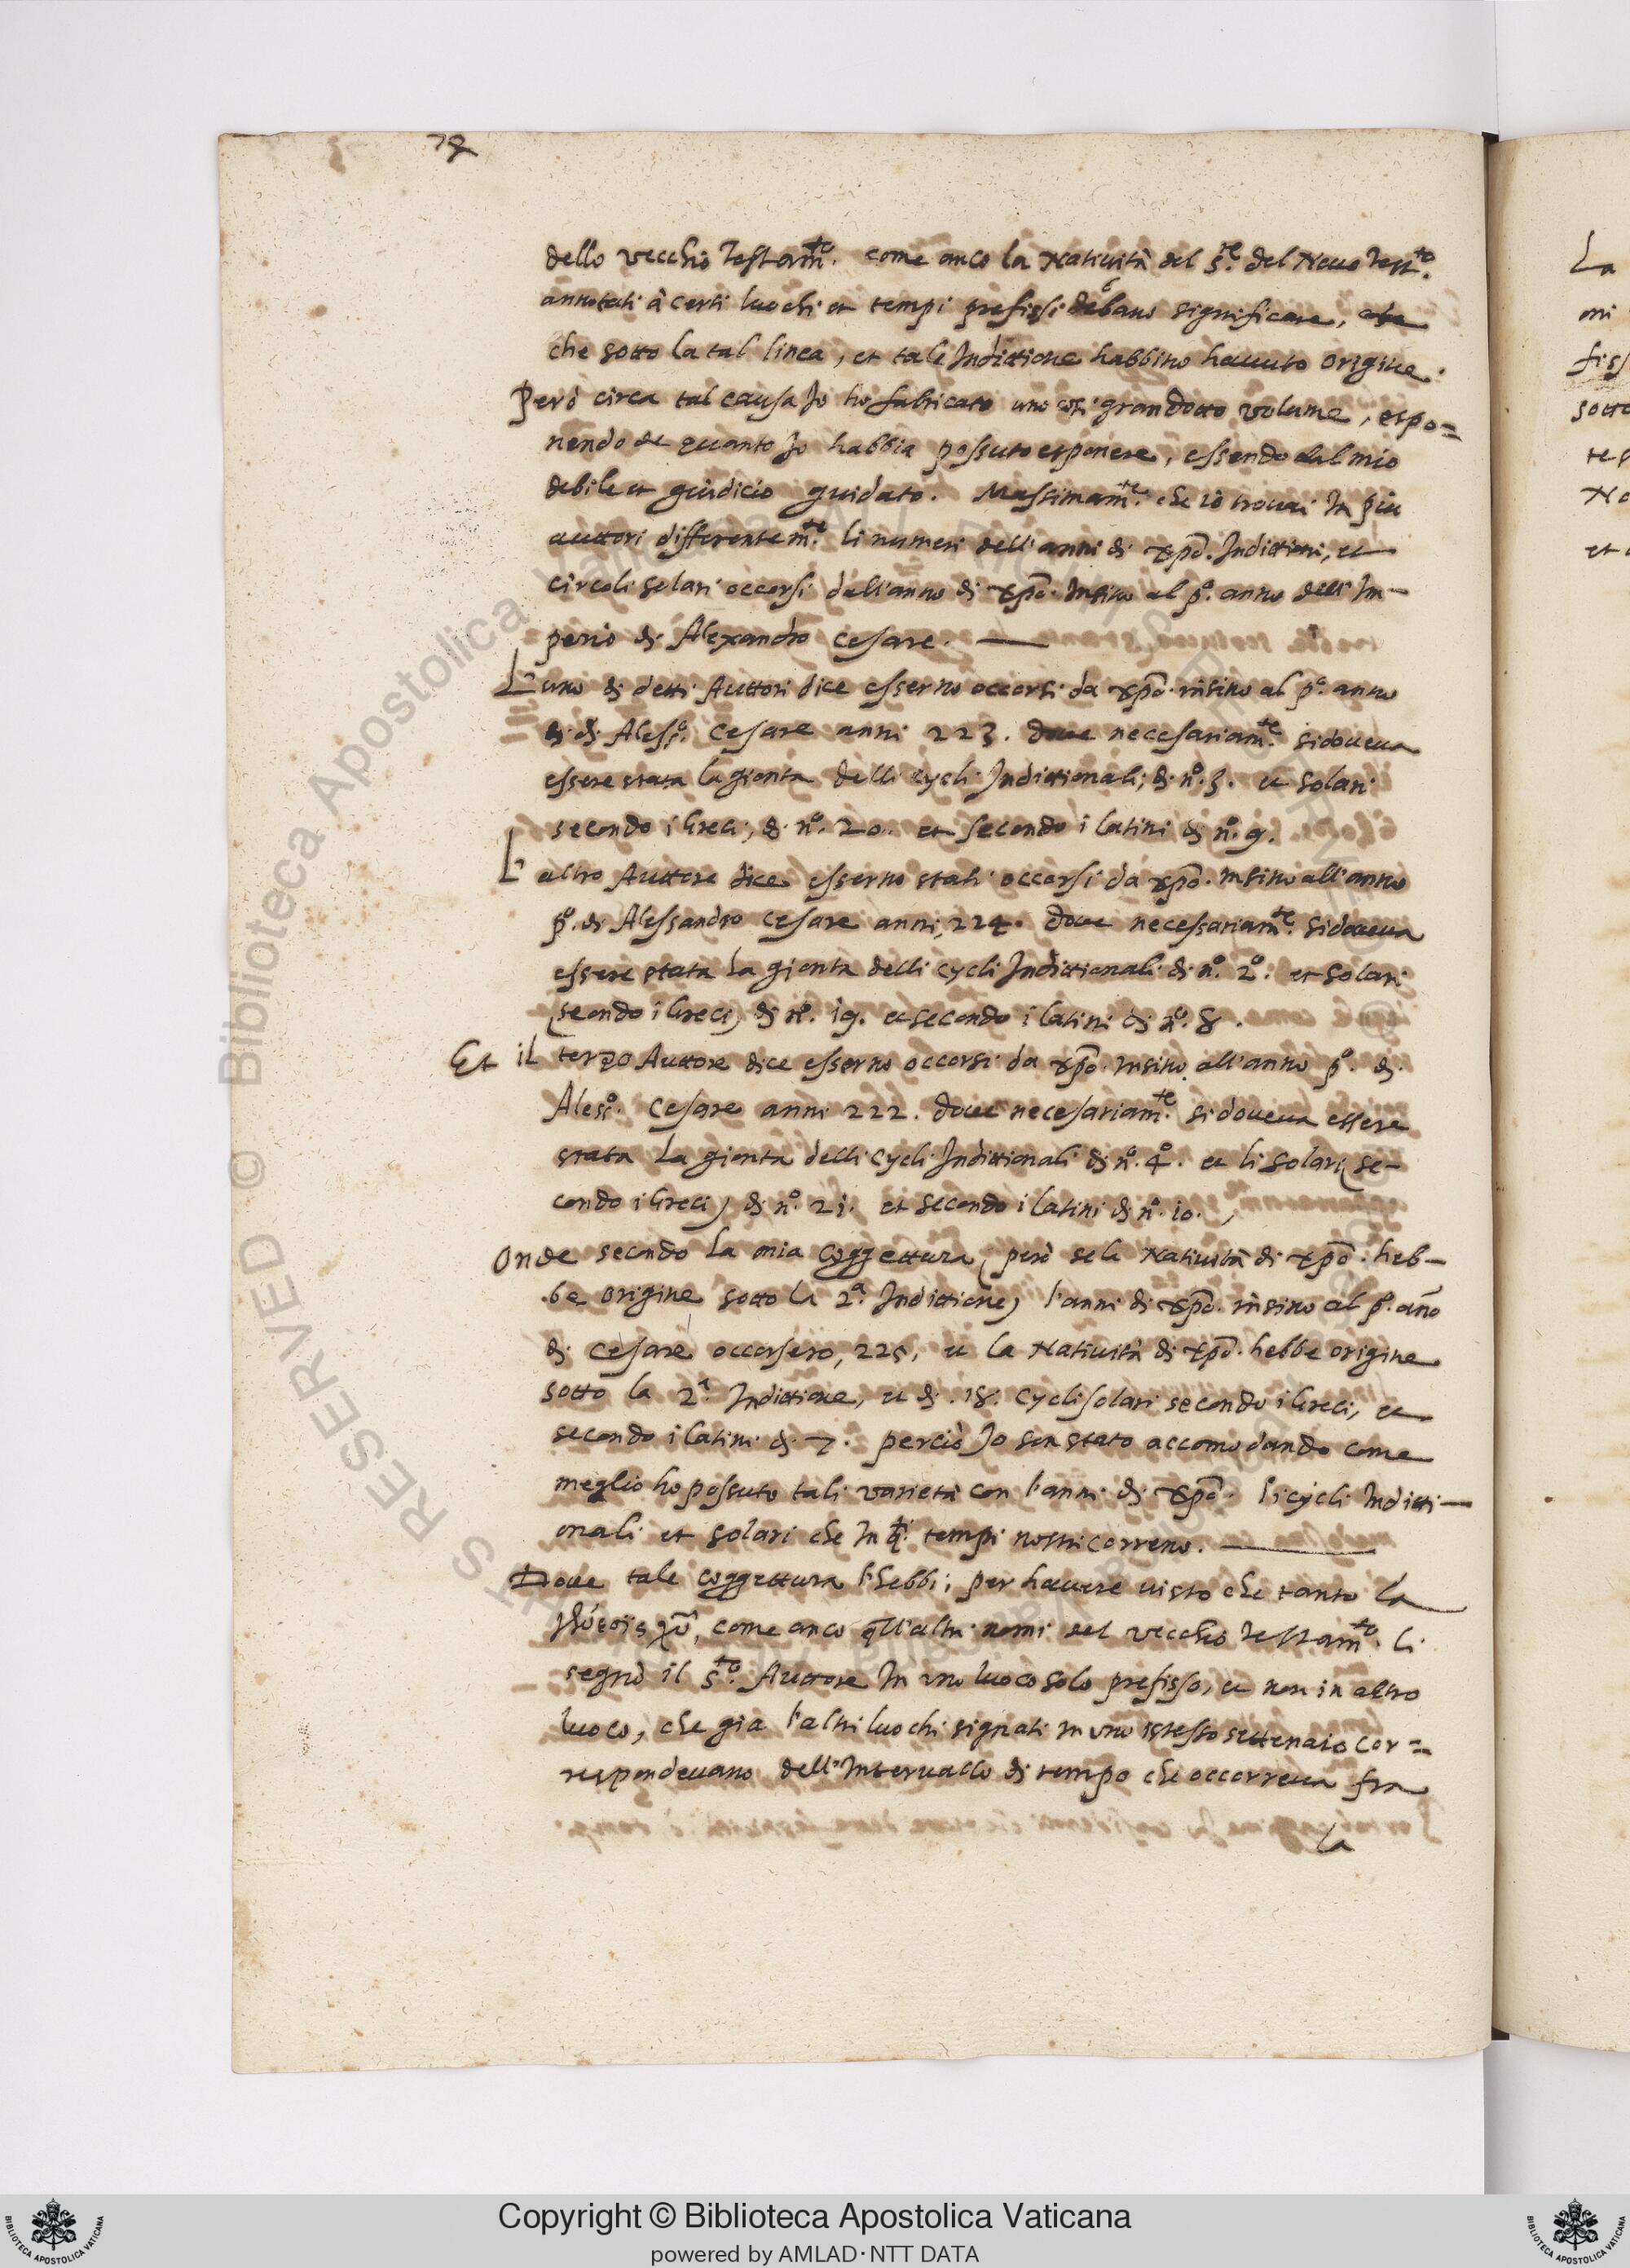 78
dello vecchio Testam.to come anco la Natiuità del S.re del Nuouo Test.to
annotati à certi luochi et tempi prefissi debano significare,
che sotto la tal linea, et tale Indittione habbino hauuto origine.
Però circa tal causa Io ho fabricato uno così grandotto volume, espo=
nendo de quanto Io habbia possuto esponere, essendo dal mio
debile et giudicio guidato. Massimam.te che io trouai In più
auttori differentem.te li numeri dell'anni di xpō. Indittioni, et
circoli solari occorsi dall'anno di xpō. Insino al p.o anno dell'Im-
perio di Alexandro Cesare.
L'uno di detti Auttori dice esserno occorsi da xpō. insino al p.o anno
di Aless.o Cesare anni 223. doue necesariam.te si doueua
essere stata la gionta delli cycli Indittionali, di n.o 3. et solari
secondo i Greci, di n.o 20. et secondo i latini di n.o 9.
L'altro Auttore dice esserno stati occorsi da xpō. insino all'anno
p.o di Alessandro Cesare anni, 224. doue necessariam.te si doueua
essere stata la gionta delli cycli Indittionali di n.o 2.o et solari
(secondo i Greci) di n.o 19. et secondo i latini di n.o 8.
Et il terzo Auttore dice esserno occorsi da xpō. insino all'anno p.o di
Aless.o Cesare anni 222. doue necesariam.te si doueua essere
stata la gionta delli cycli Indittionali di n.o 4.o et li solari (se-
condo i Greci) di n.o 21. et secondo i latini di n.o 10.
Onde secondo la mia coggettura (però se la Natiuità di xpō. heb-
be origine sotto la 2.a Indittione) l'anni di xpō. insino al p.o año
di Cesare occorsero, 225, et la Natiuità di xpō. hebbe origine
sotto la 2.a Indittione, et di .18. cycli solari secondo i Greci, et
secondo i latini di 7. perciò Io son stato accomodando come
meglio ho possuto tali varietà con l'anni di xpō. li cycli Inditti-
onali et solari che In q.ti tempi nostri correno.
Doue tale coggettura l'hebbi; per hauere uisto che tanto la
come anco q̄ll'altri nomi del vecchio Testam.to li
segnò il S.to Auttore In uno luoco solo prefisso, et non in altro
luoco, che già l'altri luochi signati in uno istesso settenaio cor=
respondeuano dell'Interuallo di tempo che occorreua fra
la
La
mi
fiss
sotto
tes
No
et
© Biblioteca Apostolica Vaticana
Copyright © Biblioteca Apostolica Vaticana
powered by AMLAD·NTT DATA
BIBLIOTECA APOSTOLICA VATICANA
BIBLIOTECA APOSTOLICA VATICANA